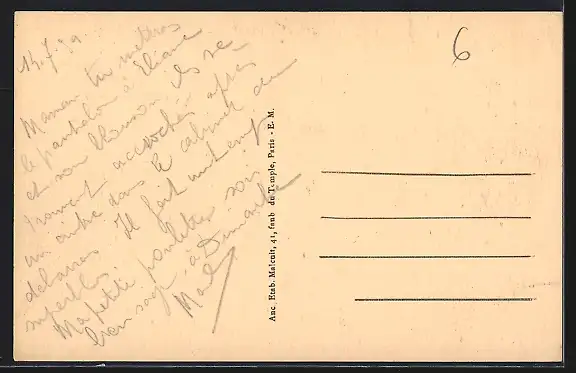 14.7.
Maman tu mettras
le pantalon à Eliane
et son blouson ils se
trouvent accroché après
un cintre dans le cabinet de
débarras Il fait un temp
superbe
Ma petite poulette soi
bien sage à Dimanche
6
Anc. Etab. Malcuit, 41, faub. du Temple, Paris - E. M.